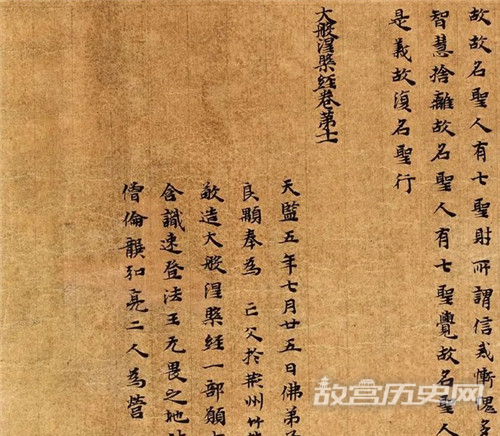 故故名聖人有七聖財所謂信戒慚愧多
智慧捨離故名聖人有七聖覺故名聖人
是義故復名聖行
大般涅槃經卷第十一
天監五年七月廿五日佛弟
良顯奉為 亡父於荊州竹
敬造大般涅槃經一部願
含識速登法王无畏之地
僧倫龔和亮二人為營
故宫历史网